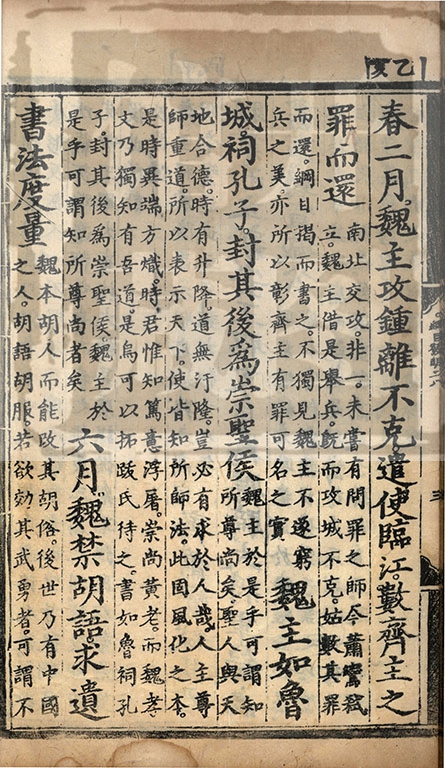 乙亥
春二月。魏主攻鍾離不克遣使臨江。數齊主之
罪而還
南北交攻。非一。未嘗有問罪之師今蕭鸞弒
立。魏主借是舉兵。旣而攻城不克。姑數其罪
而還。綱目揭而書之。不獨見魏主不遂窮
兵之美。亦所以彰齊主有罪可名之實
魏主如魯
城。祠孔子。封其後爲崇聖侯
魏主於是乎可謂知
所尊尚矣聖人與天
地合德。時有升降道無汙隆。豈必有求於人哉人主尊
師重道。所以表示天下。使皆知所師法。此固風化之本。
是時異端方熾。時君惟知篤意浮屠。崇尚黃老。而魏孝
文乃獨知有吾道。是烏可以拓跋氏待之。書如魯祠孔
子。封其後爲崇聖侯。魏主於
是乎可謂知所尊尚者矣
六月。魏禁胡語。求遺
書法度量
魏本胡人而能改其胡俗。後世乃有中國
之人。胡語胡服。若欲効其武勇者。可謂不